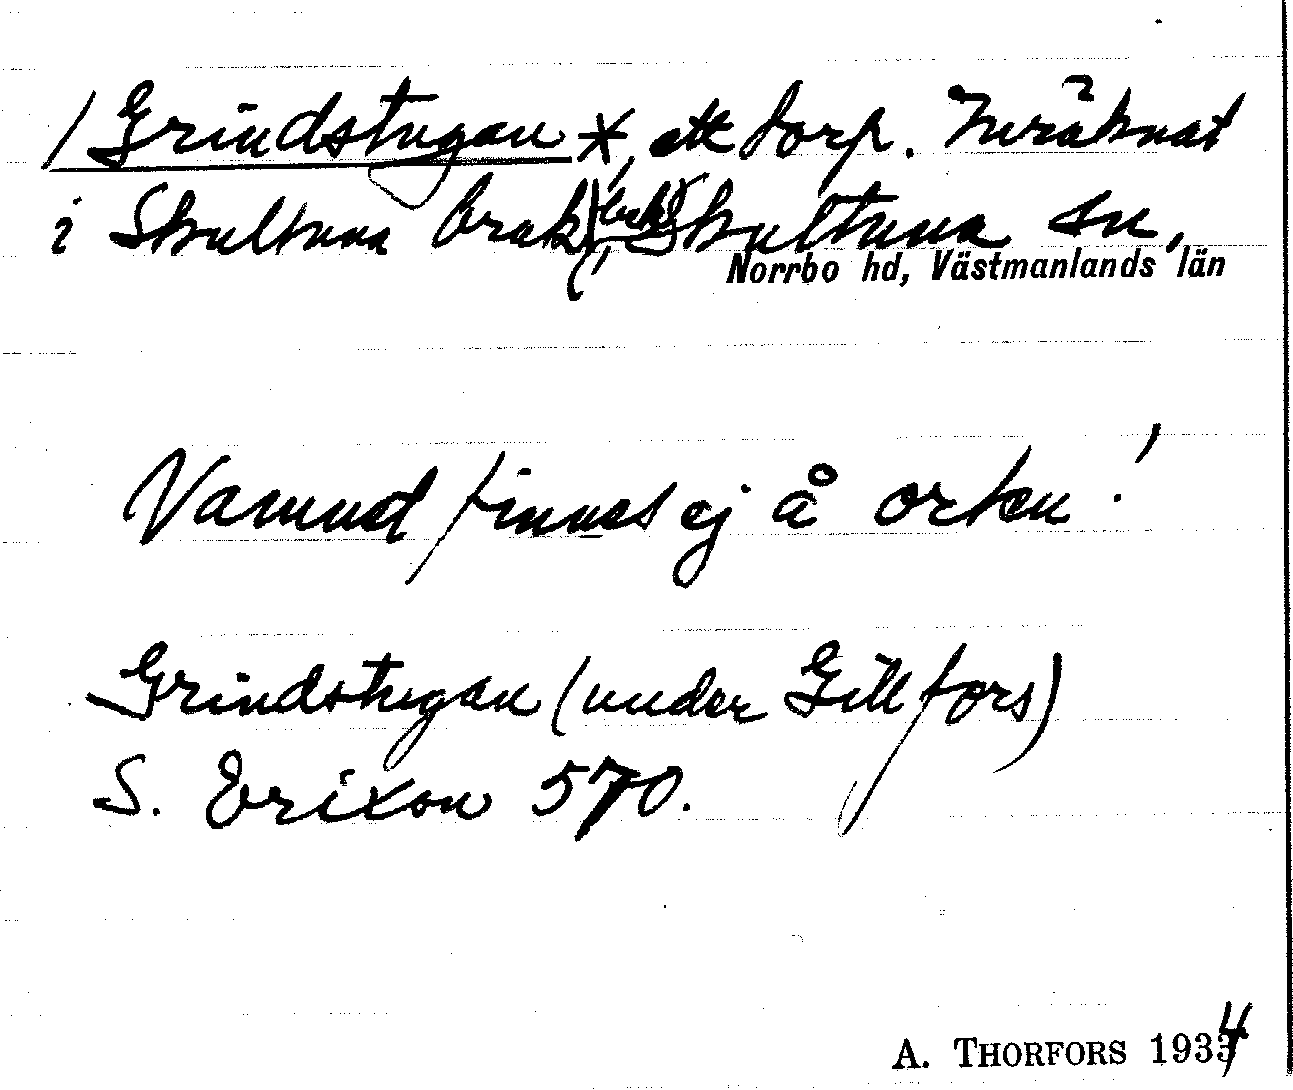 / Grindstugan *, ett torp. Inräknat
i Skultuna bruk, Skultuna sn,
Norrbo hd, Västmanlands län
Namnet finnes ej å orten!
Grindstugan (under Gillfors)
S. Erixon 570.
A. THORFORS 1934